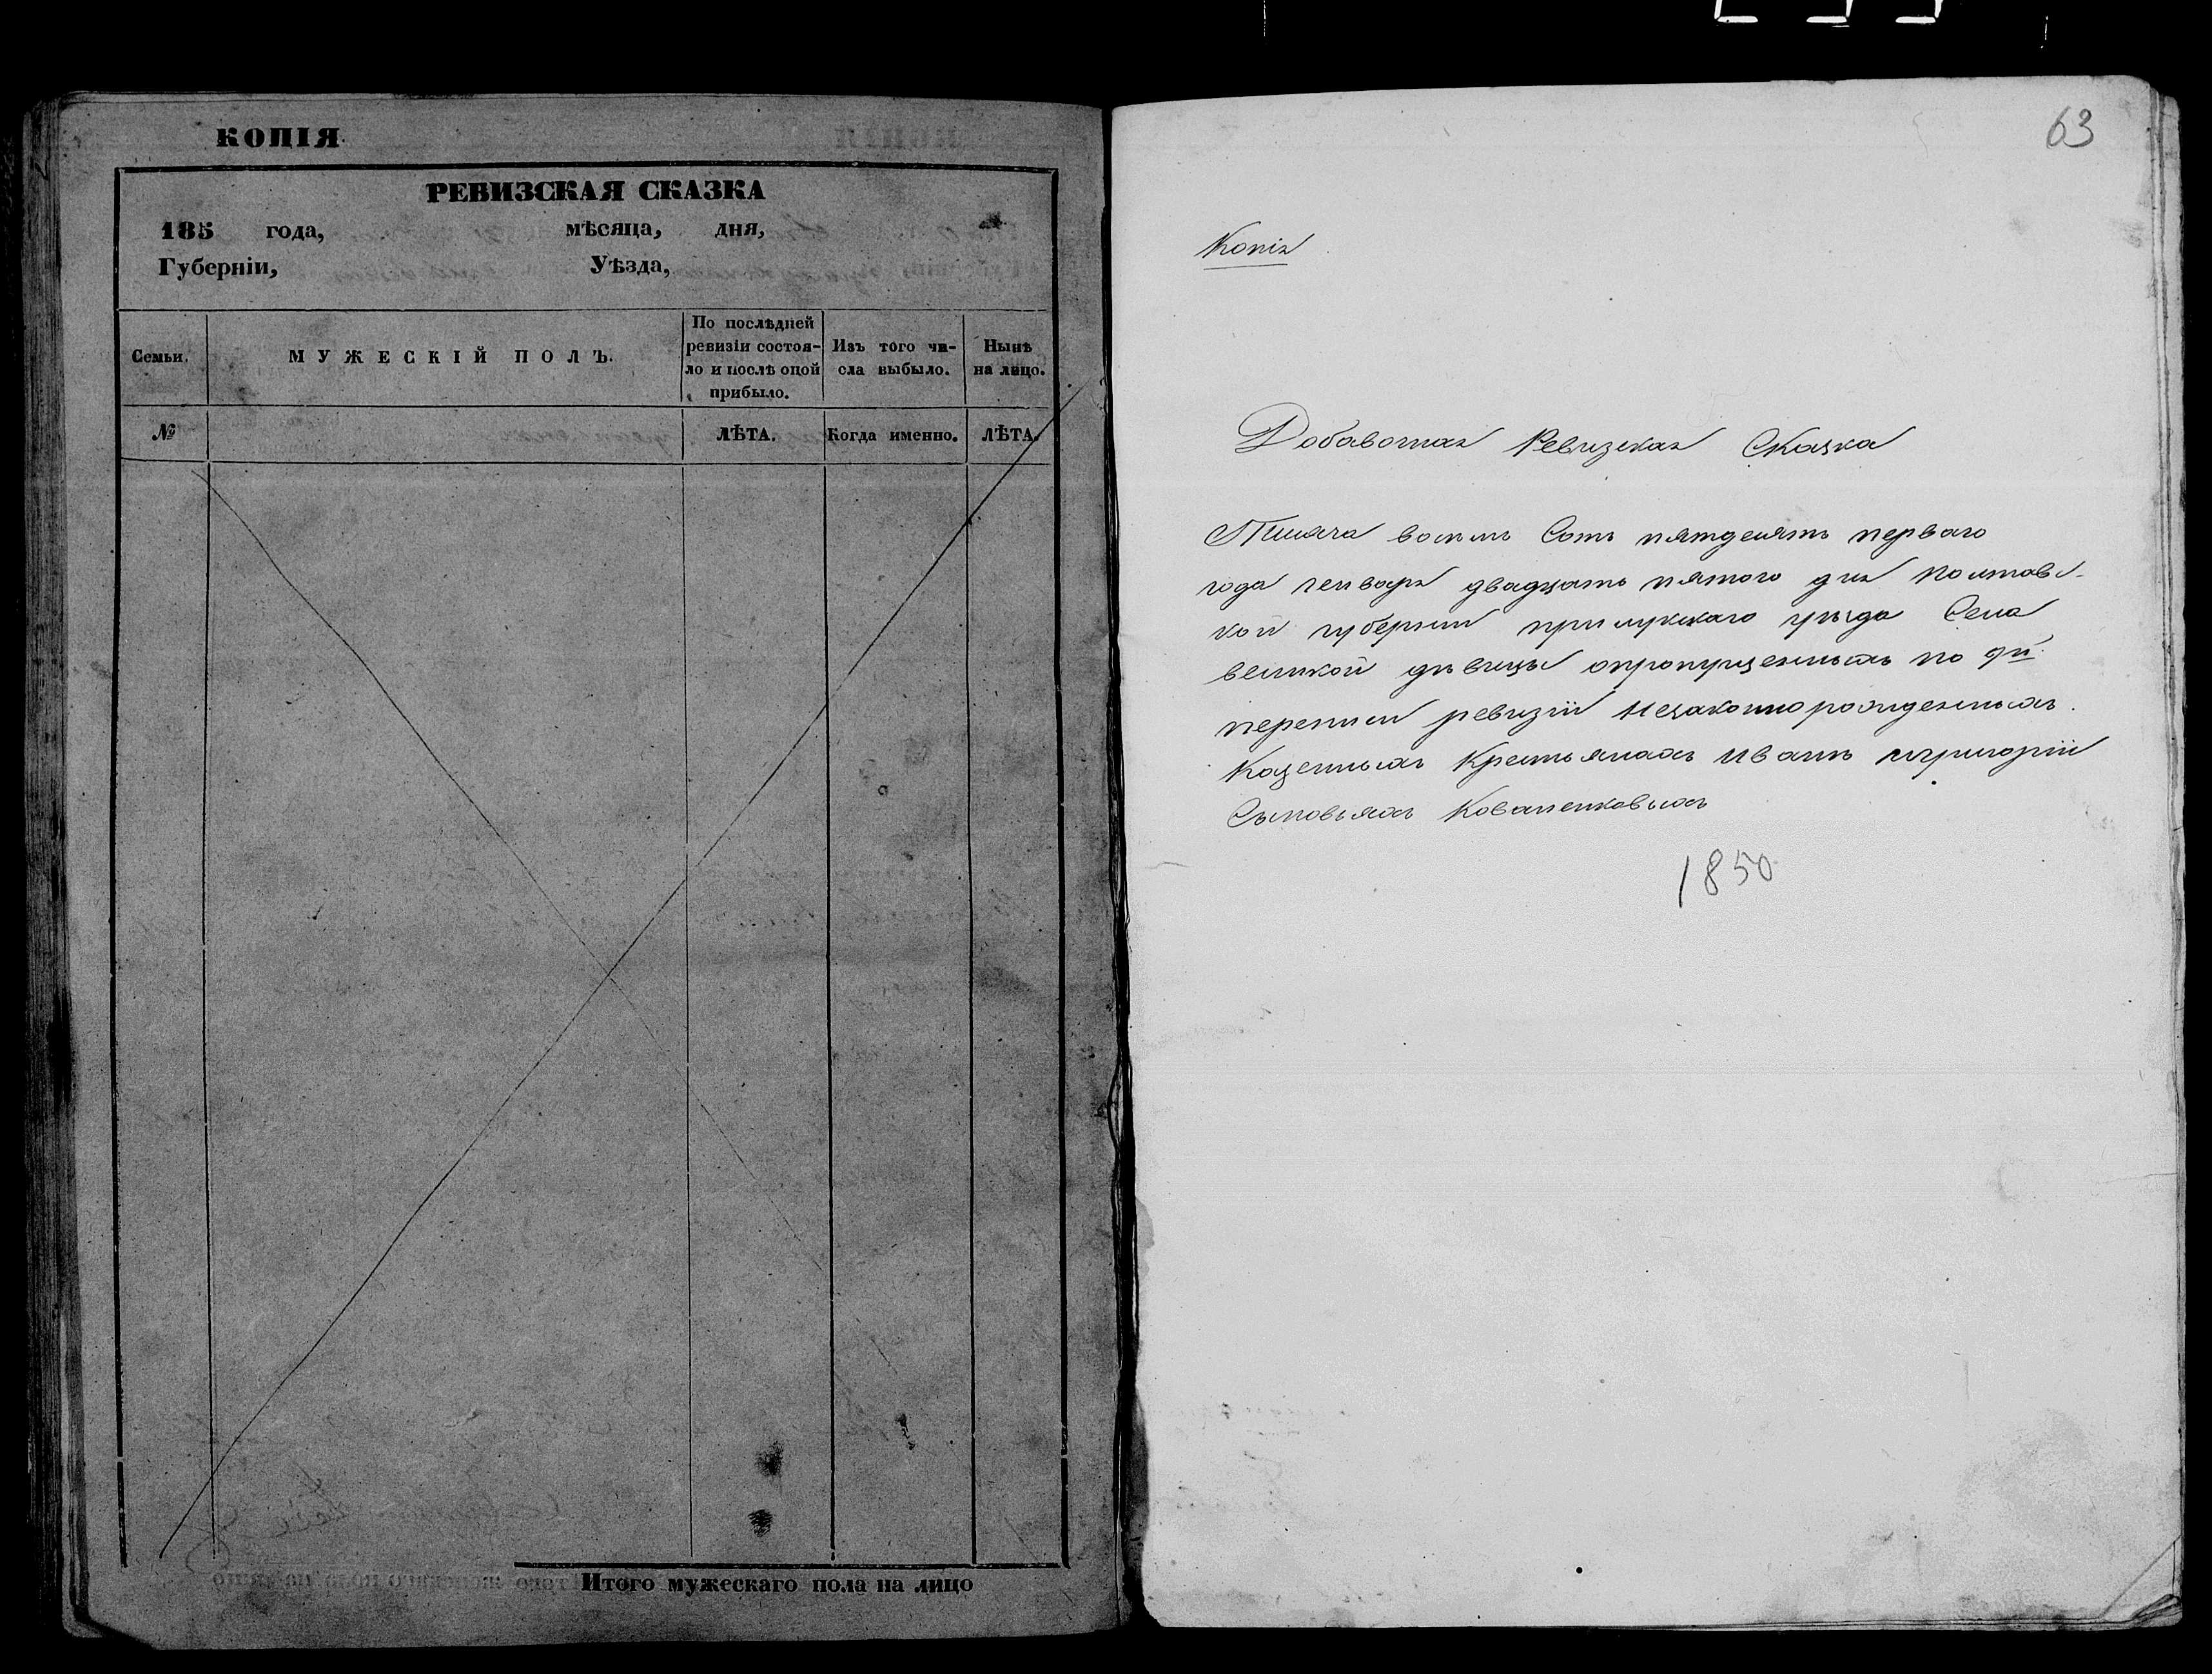 КОПІЯ
РЕВИЗСКАЯ СКАЗКА
185 года, мѣсяца, дня,
Губерніи, Уѣзда,
Семьи.
МУЖЕСКІЙ ПОЛЪ.
По послѣдней
ревизіи состоя-
ло и послѣ оной
прибыло.
Изъ того чи-
сла выбыло.
Нынѣ
на лицо.
№
ЛѢТА.
Когда именно.
ЛѢТА.
Итого мужескаго пола на лицо
63
Копія
Добавочная Ревизская Сказка
Тисяча восемь Сотъ пятдесятъ перваго
года генваря двадцать пятого дня Полтавс-
кой губерніи прилукскаго уѣзда Села
великой дѣвицы опропущенныхъ по
переписи ревизіи Незаконнорожденныхъ
Казенныхъ Крестьянахъ Иванъ игригорій
Сыновьяхъ Коваленковыхъ
1850